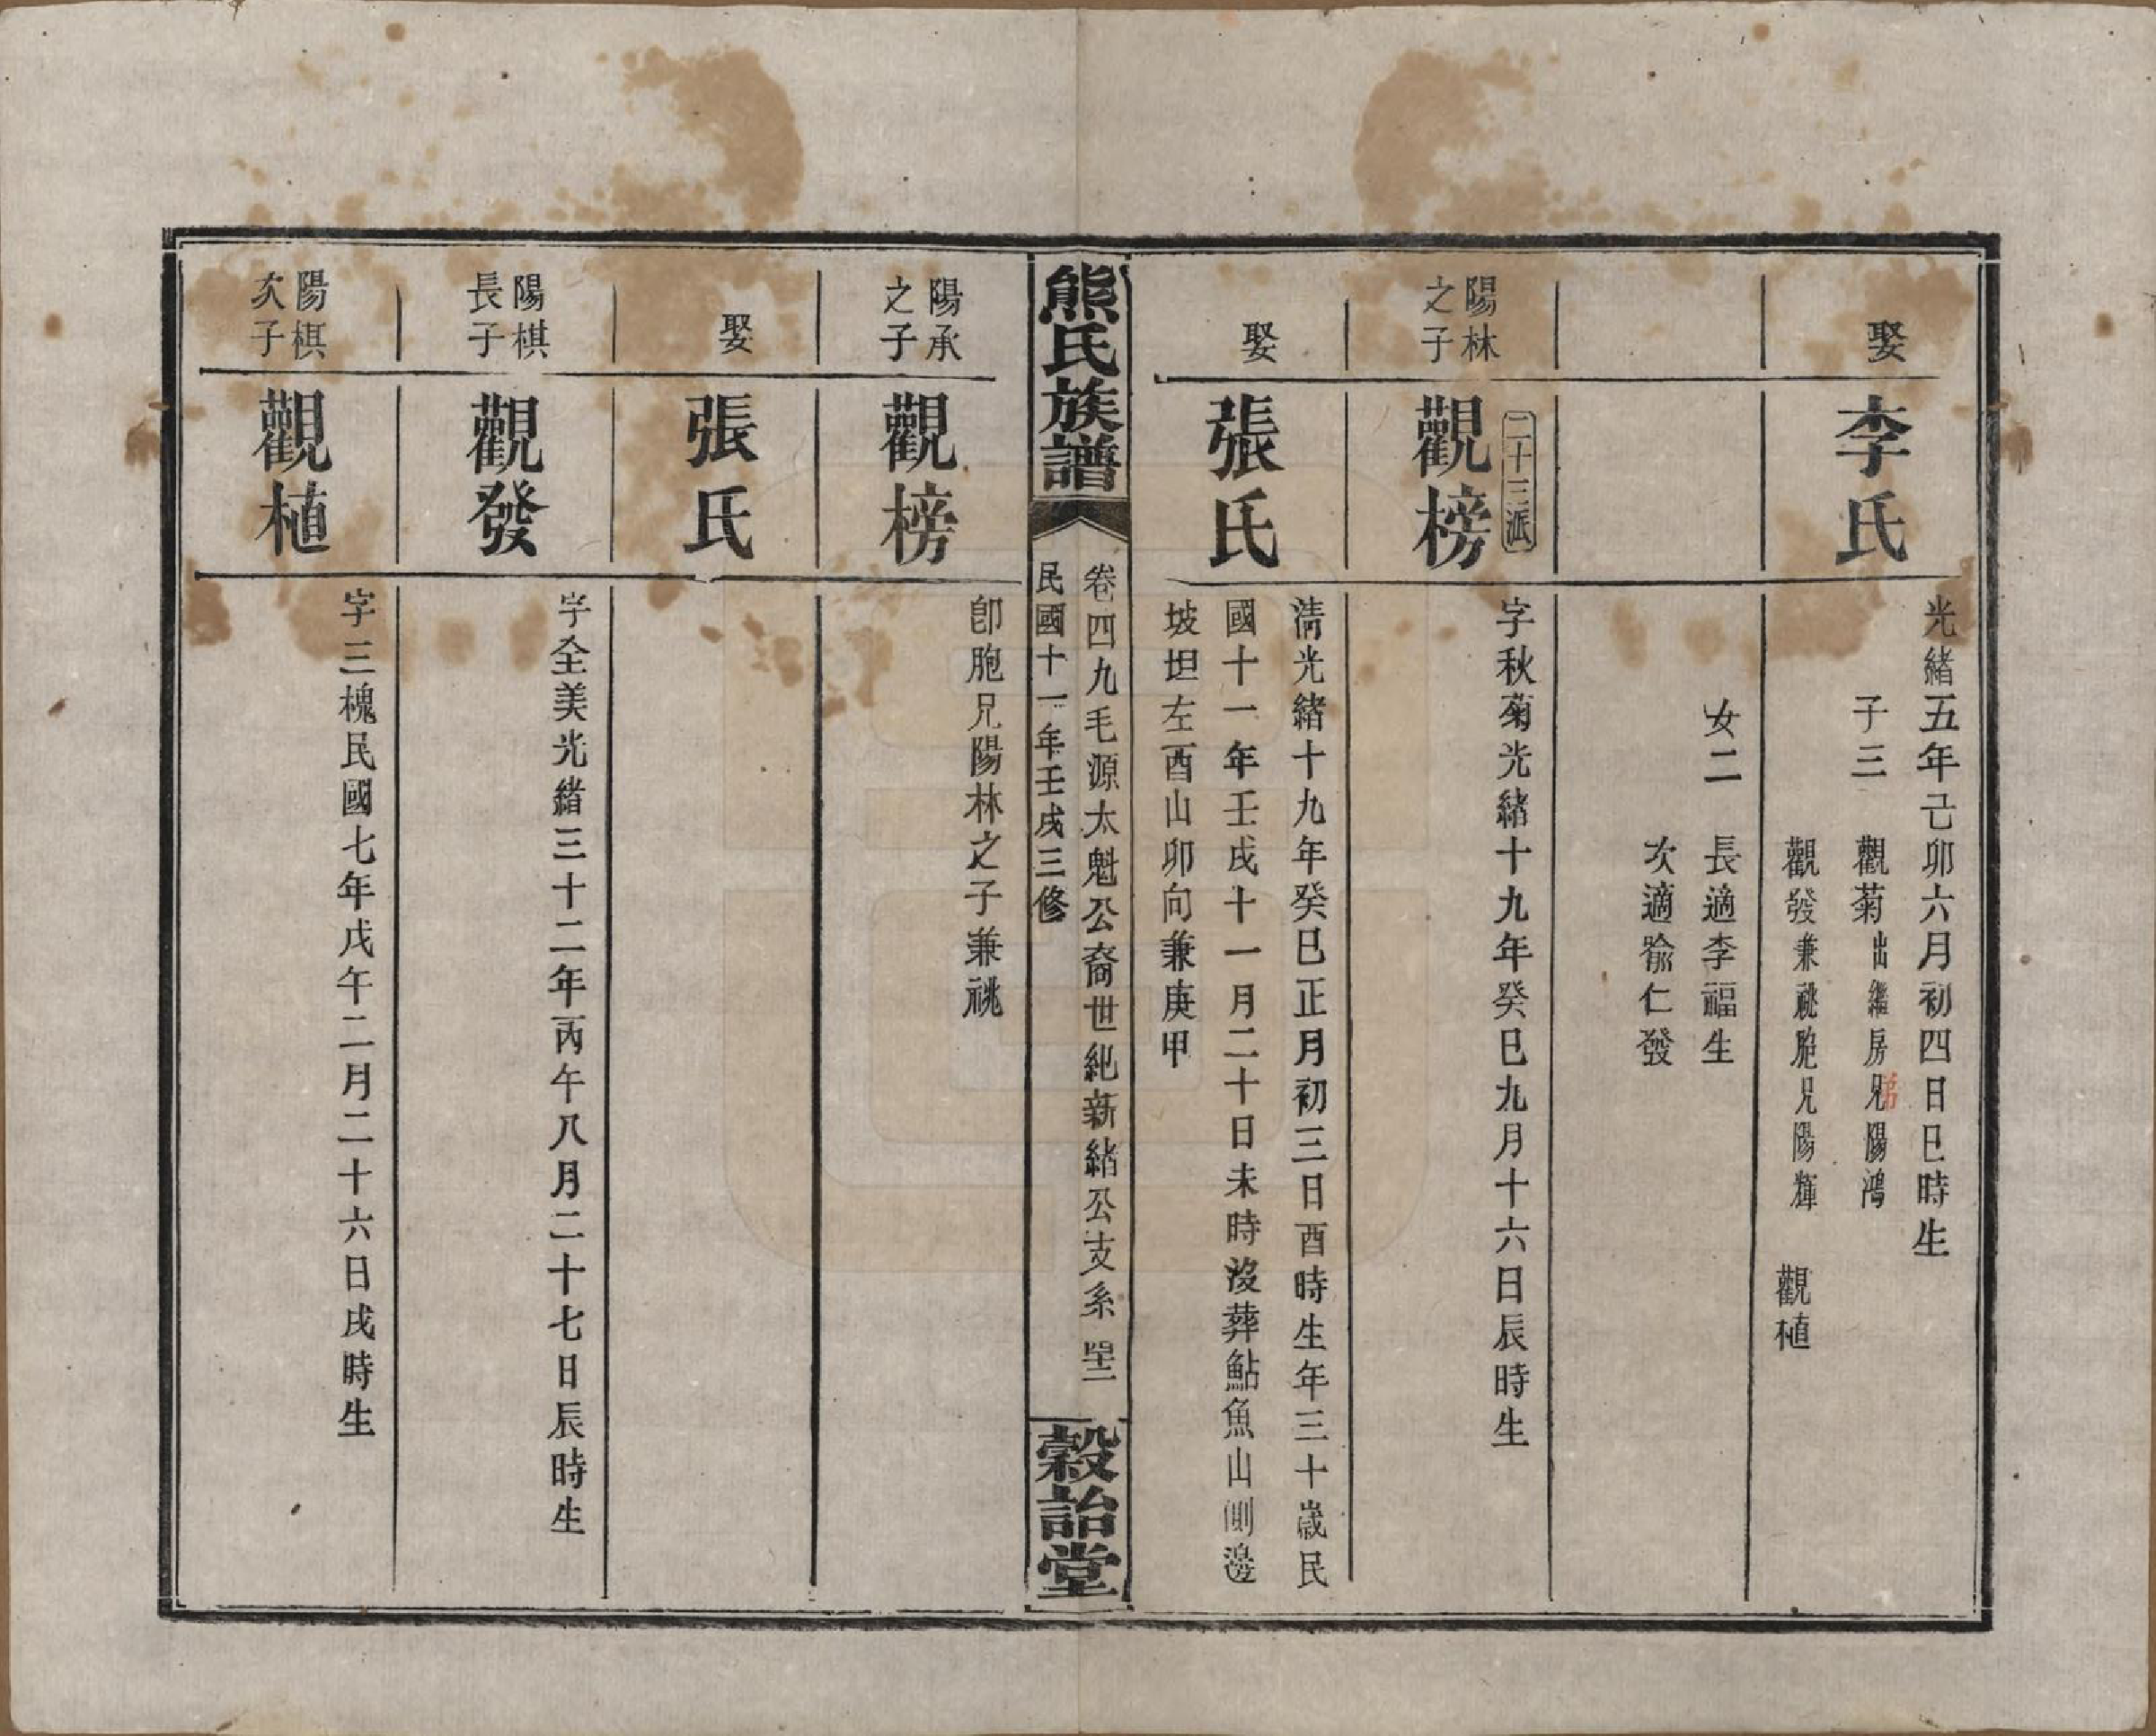 娶
李氏
光緒五年己卯六月初四日巳時生
子三
觀菊出繼房兄陽鴻
弟
觀發兼祧胞兄陽輝
觀植
女二
長適李福生
次適喻仁發
陽林
之子
二十三派
觀榜
字秋菊光緒十九年癸巳九月十六日辰時生
娶
張氏
清光緒十九年癸巳正月初三日酉時生年三十歲民
國十一年壬戌十一月二十日未時沒葬鮎魚山側邊
坡坦左酉山卯向兼庚甲
熊氏族譜
卷四九毛源太魁公裔世紀新緒公支系 四十二
民國十一年壬戌三修
穀詒堂
陽承
之子
觀榜
卽胞兄陽林之子兼祧
娶
張氏
陽棋
長子
觀發
字全美光緒三十二年丙午八月二十七日辰時生
陽棋
次子
觀植
字三槐民國七年戊午二月二十六日戌時生